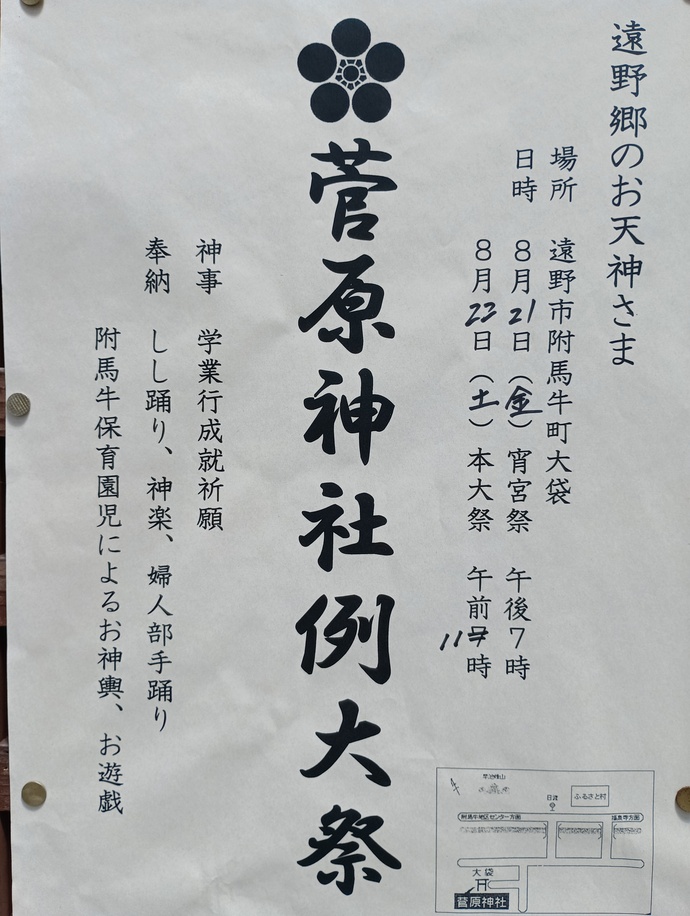 遠野郷のお天神さま
場所　遠野市附馬牛町大袋
日時　8月21日（金）宵宮祭　午後7時
8月22日（土）本大祭　午前11時
菅原神社例大祭
神事　学業行成就祈願
奉納　しし踊り、神楽、婦人部手踊り
附馬牛保育園児によるお神輿、お遊戯
早池峰山
日渡
ふるさと村
附馬牛地区センター方面
福泉寺方面
大袋
菅原神社